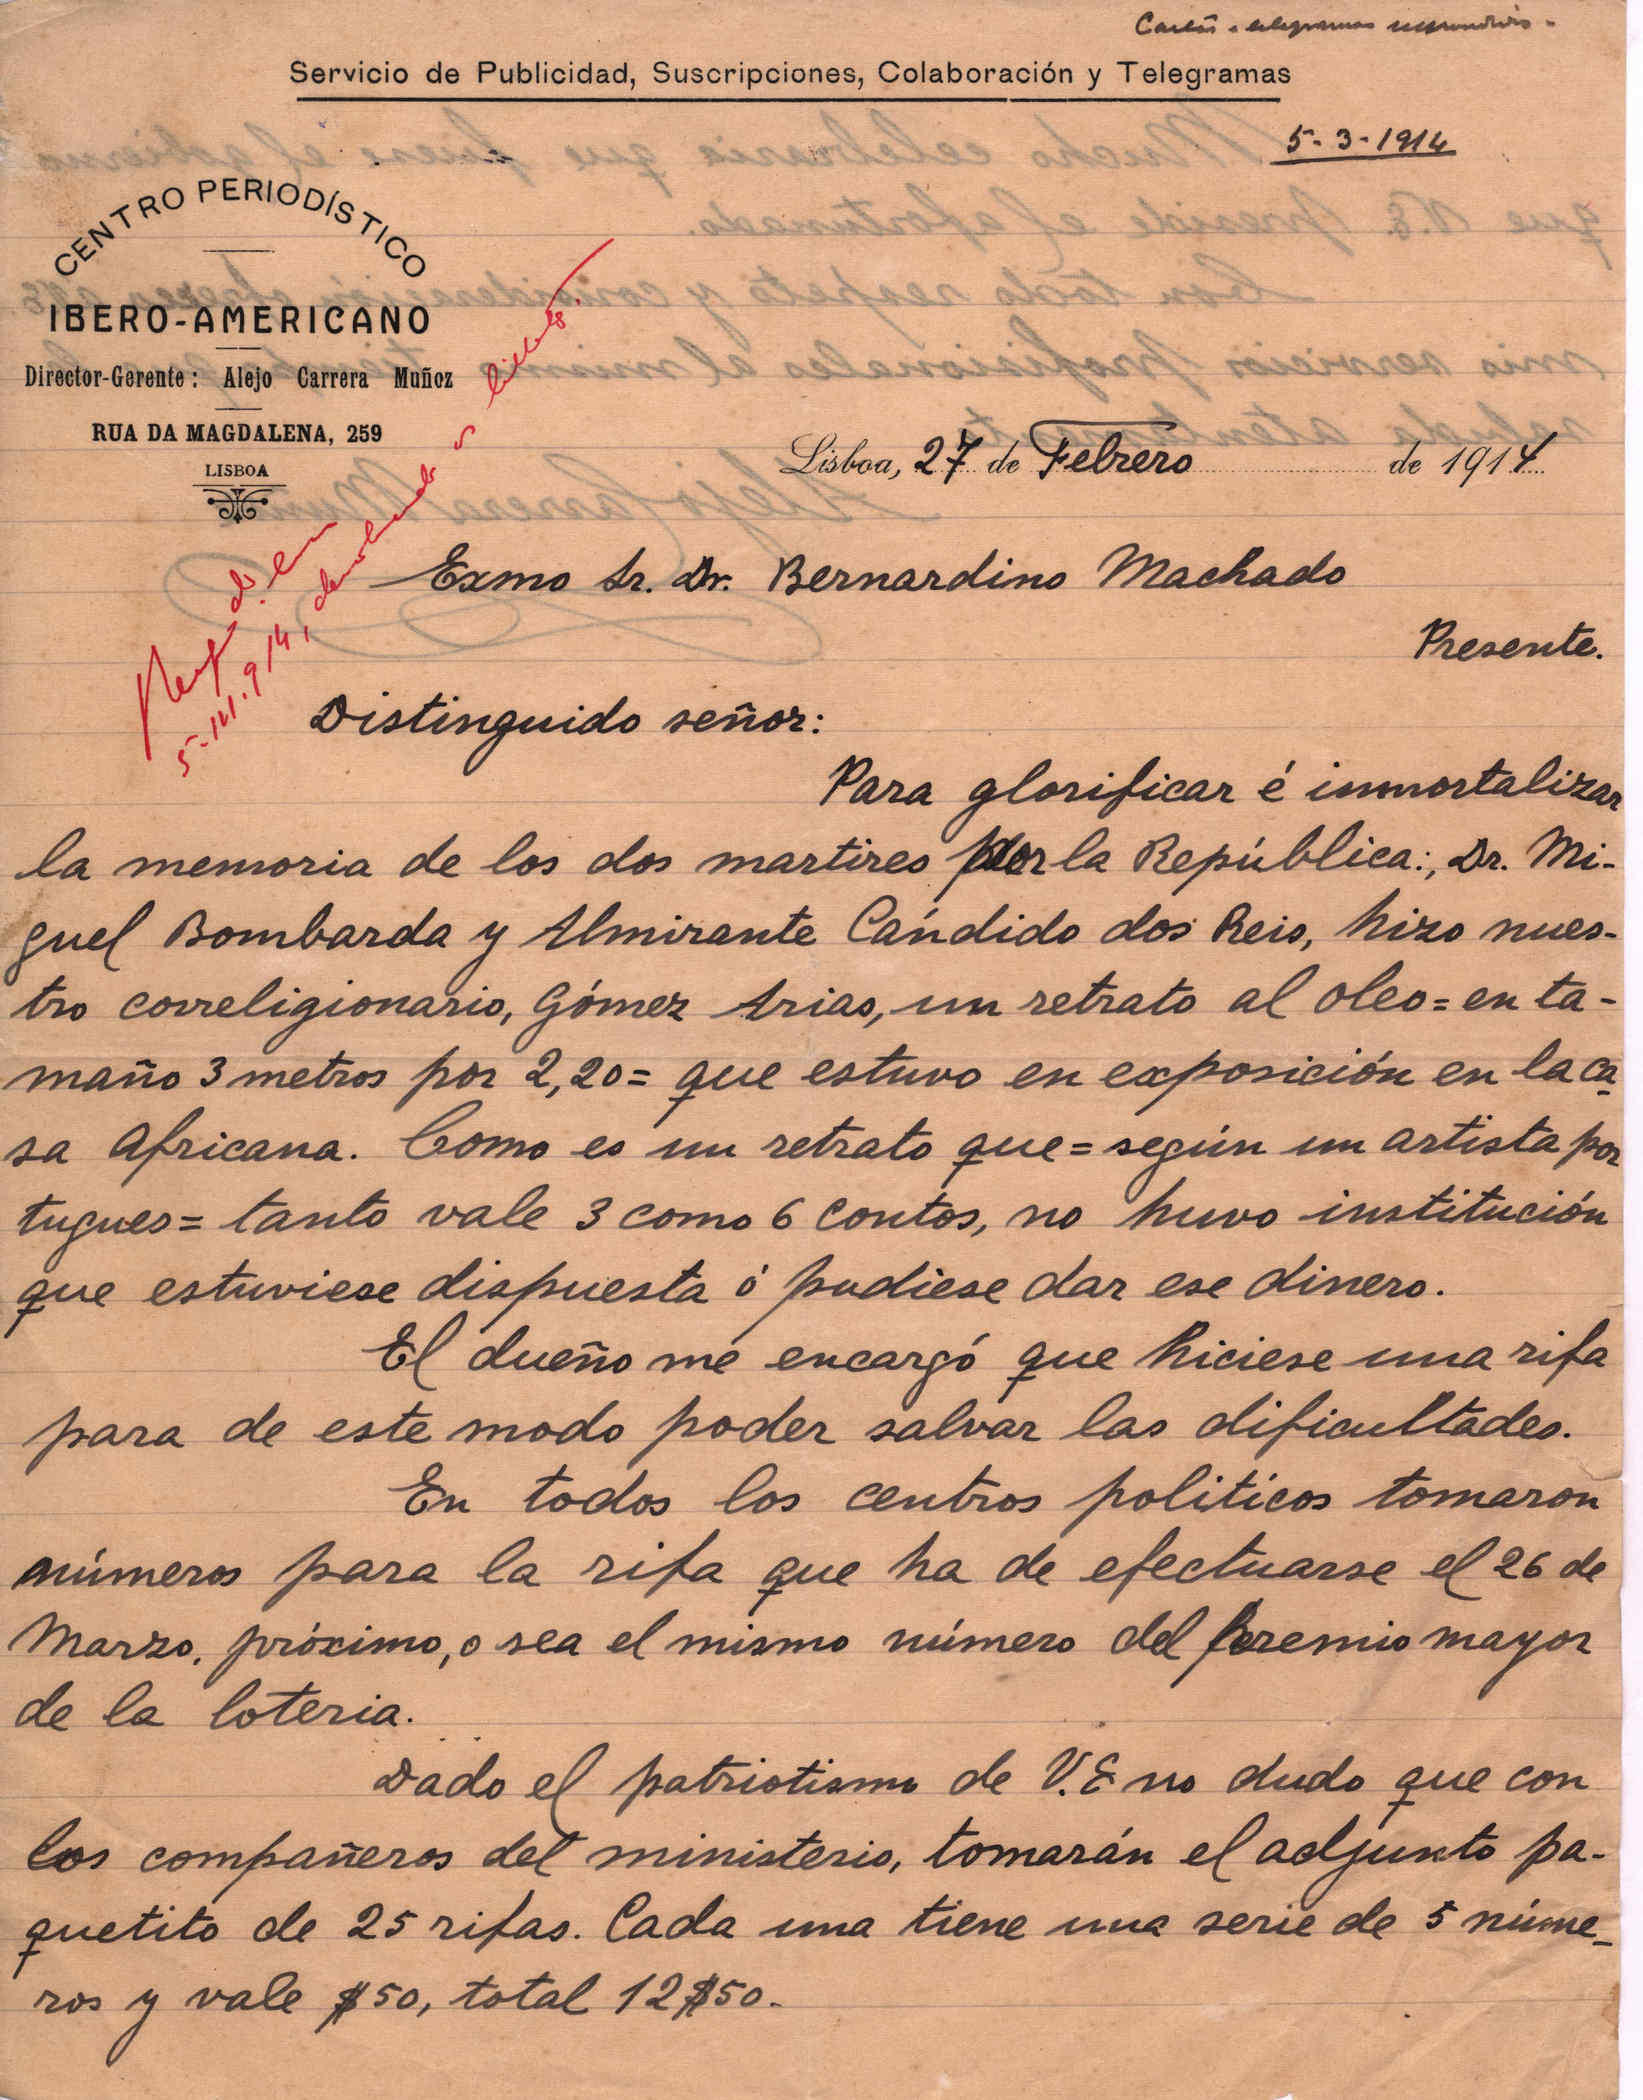 Cartas e telegramas respondidos -
Servicio de Publicidad, Suscripciones, Colaboración y Telegramas
5-3-1914
CENTRO PERIODÍSTICO
IBERO-AMERICANO
Director-Gerente: Alejo Carrera Muñoz
RUA DA MAGDALENA, 259
LISBOA
Lisboa, 27 de Febrero de 1914
5-III-914, devolvendo os bilhetes.
Exmo Sr. Dr. Bernardino Machado
Presente.
Distinguido señor:
Para glorificar é inmortalizar
la memoria de los dos martires por la República:, Dr. Mi-
guel Bombarda y Almirante Cándido dos Reis, hizo nues-
tro correligionario, Gómez Arias, un retrato al oleo = en ta-
maño 3 metros por 2,20 = que estuvo en exposición en la ca-
sa Africana. Como es un retrato que = según un artista por
tugues = tanto vale 3 como 6 contos, no huvo institución
que estuviese dispuesta ó pudiese dar ese dinero.
El dueño me encargó que hiciese una rifa
para de este modo poder salvar las dificultades.
En todos los centros políticos tomaron
números para la rifa que ha de efectuarse el 26 de
Marzo, próximo, o sea el mismo número del premio mayor
de la loteria.
Dado el patriotismo de V.E no dudo que con
los compañeros del ministerio, tomarán el adjunto pa-
quetito de 25 rifas. Cada una tiene una serie de 5 núme-
ros y vale $50, total 12$50.